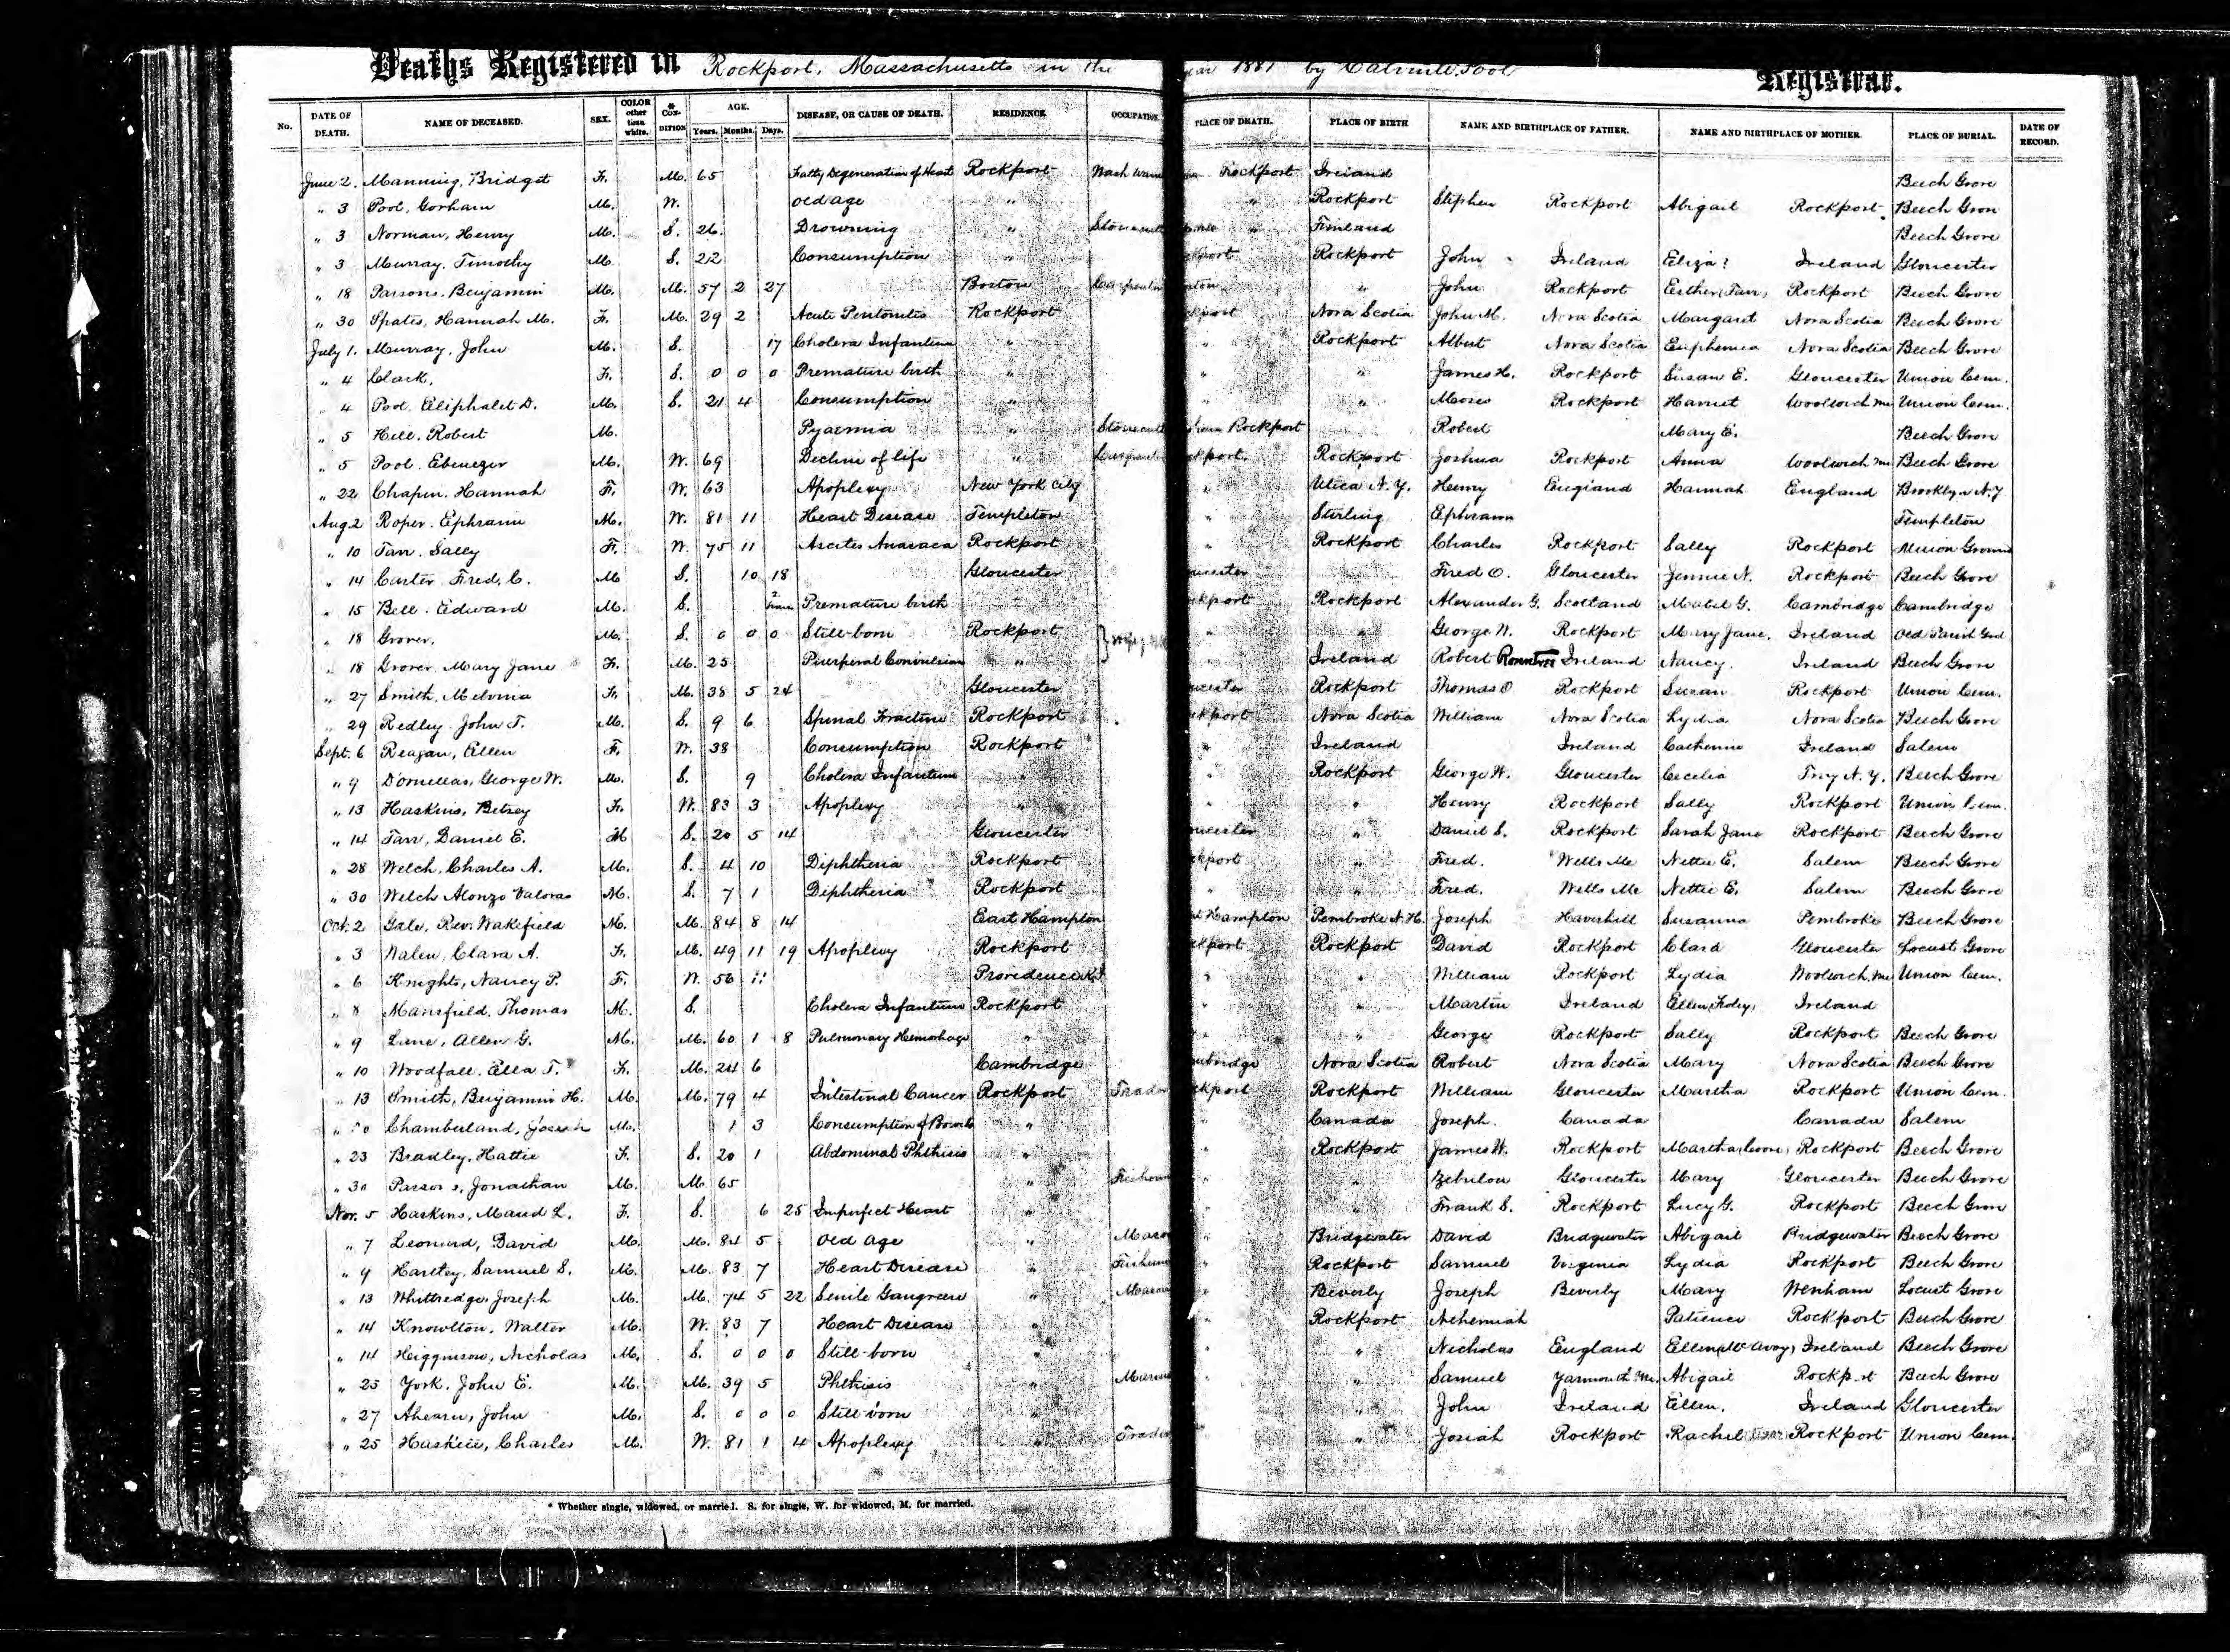 Deaths Registered in Rockport, Massachusetts in the year 1881 by Pool Registrar.
No. DATE OF DEATH. NAME OF DECEASED. SEX. COLOR other than white. * CONDITION AGE. Years. Months. Days. DISEASE, OR CAUSE OF DEATH. RESIDENCE OCCUPATION. PLACE OF DEATH. PLACE OF BIRTH NAME AND BIRTHPLACE OF FATHER. NAME AND BIRTHPLACE OF MOTHER. PLACE OF BURIAL. DATE OF RECORD.
June 2. Manning, Bridget F. M. 65 Fatty Degeneration of Heart Rockport Wash Rockport Ireland Beech Grove
" 3 Pool, Gorham M. W. Old age " " Rockport Stephen Rockport Abigail Rockport. Beech Grove
" 3 Norman, Henry M. S. 26. Drowning " " Finland Beech Grove
" 3 Murray, Timothy M S. 22 Consumption " Rockport John Ireland Eliza? Ireland Gloucester
" 18 Parsons, Benjamin M. M. 57 2 27 Boston Carpenter " John Rockport Esther (Tarr) Rockport Beech Grove
" 30 Spates, Hannah M. F. M. 29 2 Acute Peritonitis Rockport Nova Scotia John M. Nova Scotia Margaret Nova Scotia Beech Grove
July 1. Murray, John M. S. 17 Cholera Infantum " " Rockport Albert Nova Scotia Euphemia Nova Scotia Beech Grove
" 4 Clark, F. S. 0 0 0 Premature birth " " " James H. Rockport Susan E. Gloucester Union Cem.
" 4 Pool, Eliphalet D. M. S. 21 4 Consumption " " " Moses Rockport Harriet Woolwich Me Union Cem.
" 5 Hill, Robert M. Pyaemia " Rockport Robert Mary E. Beech Grove
" 5 Pool, Ebenezer M. W. 69 Decline of life " Rockport Joshua Rockport Anna Woolwich Me Beech Grove
" 22 Chapin, Hannah F. W. 63 Apoplexy New York City " Utica N.Y. Henry England Hannah England Brooklyn N.Y
Aug 2 Roper, Ephraim M. W. 81 11 Heart Disease Templeton " Sterling Ephraim Templeton
" 10 Tarr, Sally F. W. 75 11 Ascites Anasaca Rockport " Rockport Charles Rockport Sally Rockport Union Ground
" 14 Carter, Fred. C. M S. 10 18 Gloucester Fred O. Gloucester Jennie N. Rockport Beech Grove
" 15 Bell, Edward M. S. 2 hours Premature birth Rockport Alexander G. Scotland Mabel G. Cambridge Cambridge
" 18 Grover, M. S. 0 0 0 Still-born Rockport " " George W. Rockport Mary Jane, Ireland Old Parish Grd
" 18 Grover, Mary Jane F. M. 25 Puerperal Convulsion " " Ireland Robert Rountree Ireland Nancy. Ireland Beech Grove
" 27 Smith, Melvina F. M. 38 5 24 Gloucester Rockport Thomas O Rockport Susan Rockport Union Cem.
" 29 Redley, John T. M. S. 9 6 Spinal Fracture Rockport Nova Scotia William Nova Scotia Lydia Nova Scotia Beech Grove
Sept. 6 Reagan, Ellen F. W. 38 Consumption Rockport " Ireland Ireland Catherine Ireland Salem
" 9 Dornellas, George W. M. S. 9 Cholera Infantum " " Rockport George W. Gloucester Cecelia Troy N.Y. Beech Grove
" 13 Haskins, Betsey F. W. 83 3 Apoplexy " " " Henry Rockport Sally Rockport Union Cem.
" 14 Tarr, Daniel E. M S. 20 5 14 Gloucester " Daniel S. Rockport Sarah Jane Rockport Beech Grove
" 28 Welch, Charles A. M. S. 4 10 Diphtheria Rockport " Fred. Wells Me Nettie E. Salem Beech Grove
" 30 Welch Alonzo Valoras M. S. 7 1 Diphtheria Rockport " " Fred. Wells Me Nettie E. Salem Beech Grove
Oct. 2 Gale, Rev. Wakefield M. M. 84 8 14 East Hampton Pembroke N.H. Joseph Haverhill Susanna Pembroke Beech Grove
" 3 Nalen, Clara A. F. M. 49 11 19 Apoplexy Rockport Rockport David Rockport Clara Gloucester Locust Grove
" 6 Knights, Nancy P. F. W. 56 11 Providence R.I. " " William Rockport Lydia Woolwich, Me Union Cem.
" 8 Mansfield, Thomas M. S. Cholera Infantum Rockport " " Martin Ireland Ellen (Foley) Ireland
" 9 Lane, Allen G. M. M. 60 1 8 Pulmonary Hemorhage " " " George Rockport Sally Rockport Beech Grove
" 10 Woodfall, Ella T. F. M. 24 6 Cambridge Nova Scotia Robert Nova Scotia Mary Nova Scotia Beech Grove
" 13 Smith, Benjamin H. M. M. 79 4 Intestinal Cancer Rockport Trader Rockport William Gloucester Martha Rockport Union Cem.
" Chamberland, Joseph M. 1 3 Consumption of Bowels " " Canada Joseph. Canada Canada Salem
" 23 Bradley, Hattie F. S. 20 1 Abdominal Phthisis " " Rockport James W. Rockport Martha Rockport Beech Grove
" 30 Parsons, Jonathan M. M. 65 " " " Zebulon Gloucester Mary Gloucester Beech Grove
Nov. 5 Haskins, Maud L. F. S. 6 25 Imperfect Heart " " " Frank S. Rockport Lucy G. Rockport Beech Grove
" 7 Leonard, David M. M. 84 5 Old Age " Mason " Bridgwater David Bridgewater Abigail Bridgewater Beech Grove
" 9 Hartley, Samuel S. M. M. 83 7 Heart Disease " " Rockport Samuel Virginia Lydia Rockport Beech Grove
" 13 Whittredge, Joseph M. M. 74 5 22 Senile Gangrene " Mason " Beverly Joseph Beverly Mary Wenham Locust Grove
" 14 Knowlton, Walter M. W. 83 7 Heart Disease " " Rockport Nehemiah Patience Rockport Beech Grove
" 14 Higginson, Nicholas M. S. 0 0 0 Still-born " " " Nicholas England Ellen (Mc Avoy) Ireland Beech Grove
" 25 York, John E. M. M. 39 5 Phthisis " " " Samuel Yarmouth Me. Abigail Rockport Beech Grove
" 27 Ahearn, John M. S. 0 0 0 Still-born " " " John Ireland Ellen. Ireland Gloucester
" 25 Haskell, Charles M. W. 81 1 4 Apoplexy " Trader " " Josiah Rockport Rachel (Tarr) Rockport Union Cem.
* Whether single, widowed, or married. S. for single, W. for widowed, M. for married.